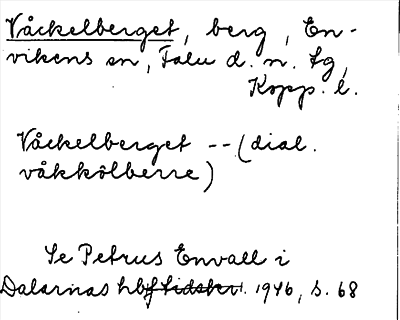 Våckelberget, berg, En-
vikens sn, Falu d. n. tg,
Kopp. l.
Våckelberget -- (dial.
våkkôlberre)
Se Petrus Envall i
Dalarnas hbf tidskr. 1946, s. 68